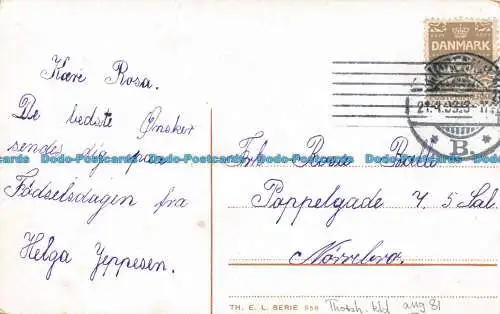 DANMARK
Kære Rosa.
De bedste Ønsker
sendes dig paa
Fødselsdagen fra
Helga Jeppesen.
B.
Frk. Rosa
Poppelgade 4. 5 Sal.
Nørrebro.
Dodo-Postcards Dodo-Postcards Dodo-Postcards Dodo-Postcards Dodo-Postcards Dodo-Postcards
TH. E. L. SERIE
aug 81